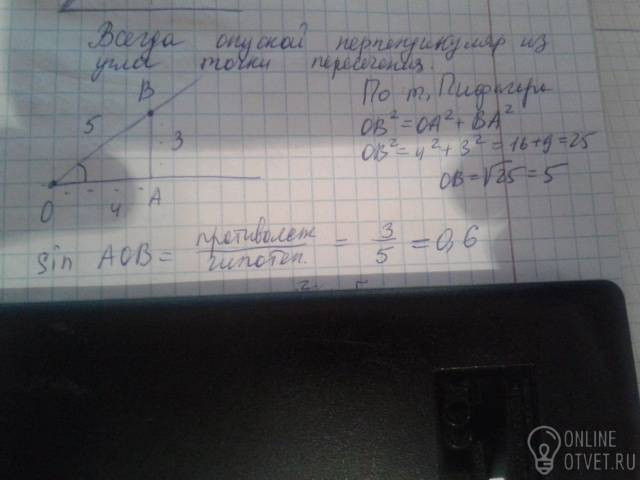 Всегда опускай перпендикуляр из
угла точки пересечения.
B
По т. Пифагора
5
OB²=OA²+BA²
3
OB²=4²+3²=16+9=25
OB=√25=5
O
4
A
sin AOB= противолеж / гипотен. = 3/5 =0,6
ONLINE
OTVET.RU